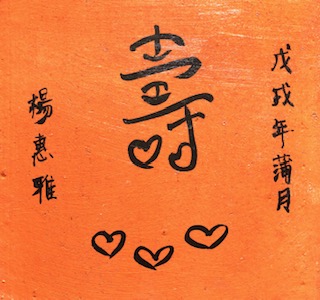 戊戌年蒲月
壽
楊惠雅